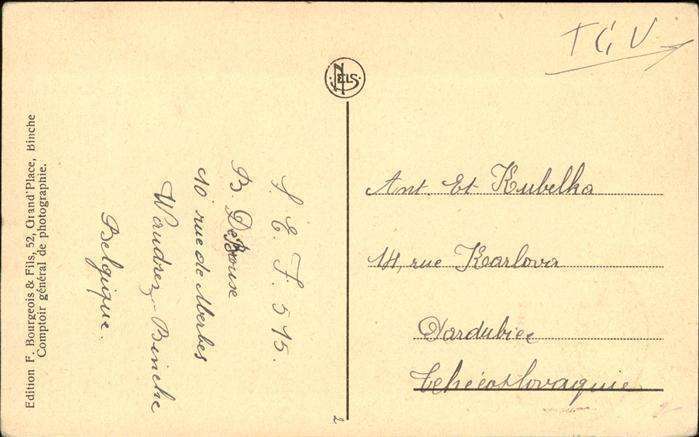 Edition F. Bourgeois & Fils, 52, Grand'Place, Binche
Comptoir général de photographie.
S. E. F. 515.
B. DeBouse
10 rue de Merbes
Waudrez-Binche
Belgique.
NELS
TCV
Ant. Et Kubelka
14, rue Karlova
Pardubice
Tchécoslovaquie